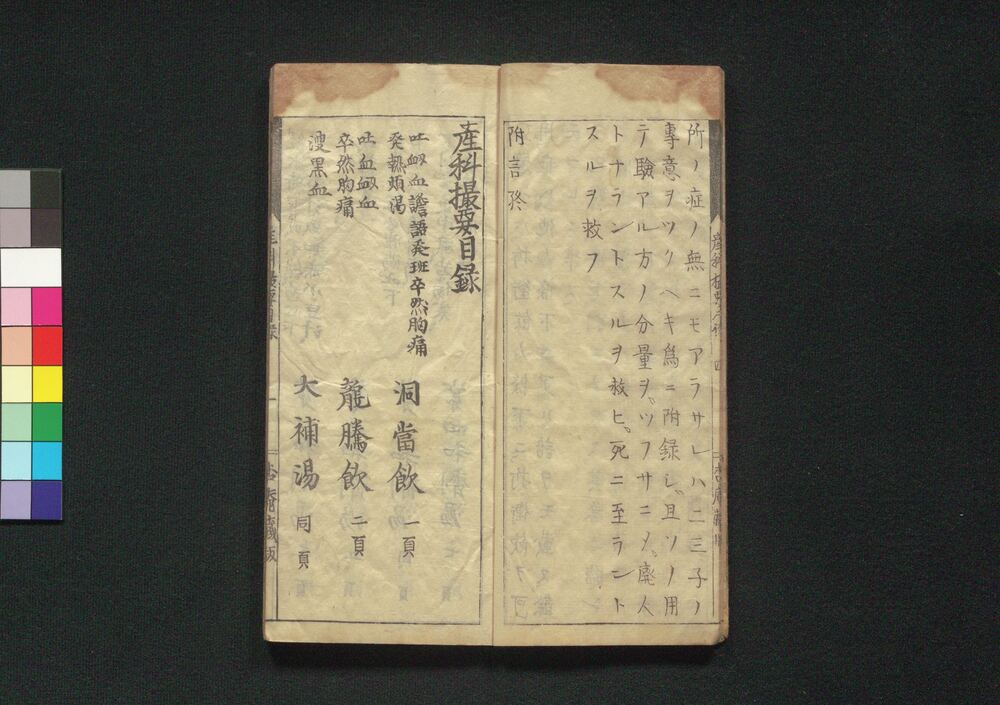 所ノ症ノ無ニモアラサレハ二三子ノ
專意ヲツクヘキ爲ニ附録シ且ソノ用
テ驗アル方ノ分量ヲツフサニメ廃人
トナラントスルヲ救ヒ死ニ至ラント
スルヲ救フ
附言終
産科撮要目録
吐衂血譫語発班卒然胸痛
発熱煩渇
洞當飲 一頁
吐血衂血
卒然胸痛
龍騰飲 二頁
溲黒血
大補湯 同頁